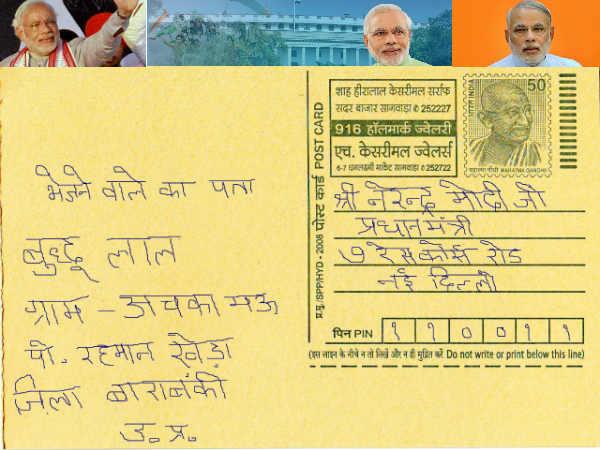 भेजने वाले का पता
बुद्धू लाल
ग्राम - अचका मऊ
पो. रहमान खेड़ा
जिला बाराबंकी
उ. प्र.
प.मु./SPP/HYD - 2008 पोस्ट कार्ड POST CARD
शाह हीरालाल केसरीमल सर्राफ
सदर बाजार सागवाडा ✆ 252227
916 हॉलमार्क ज्वेलरी
एच. केसरीमल ज्वेलर्स
6-7 धनलक्ष्मी मार्केट सागवाडा ✆ 252722
50
भारत INDIA
महात्मा गाँधी MAHATMA GANDHI
श्री नरेन्द्र मोदी जी
प्रधानमंत्री
७ रेसकोर्स रोड
नई दिल्ली
पिन PIN ११००११
(इस लाइन के नीचे न तो लिखें और न ही मुद्रित करें Do not write or print below this line)